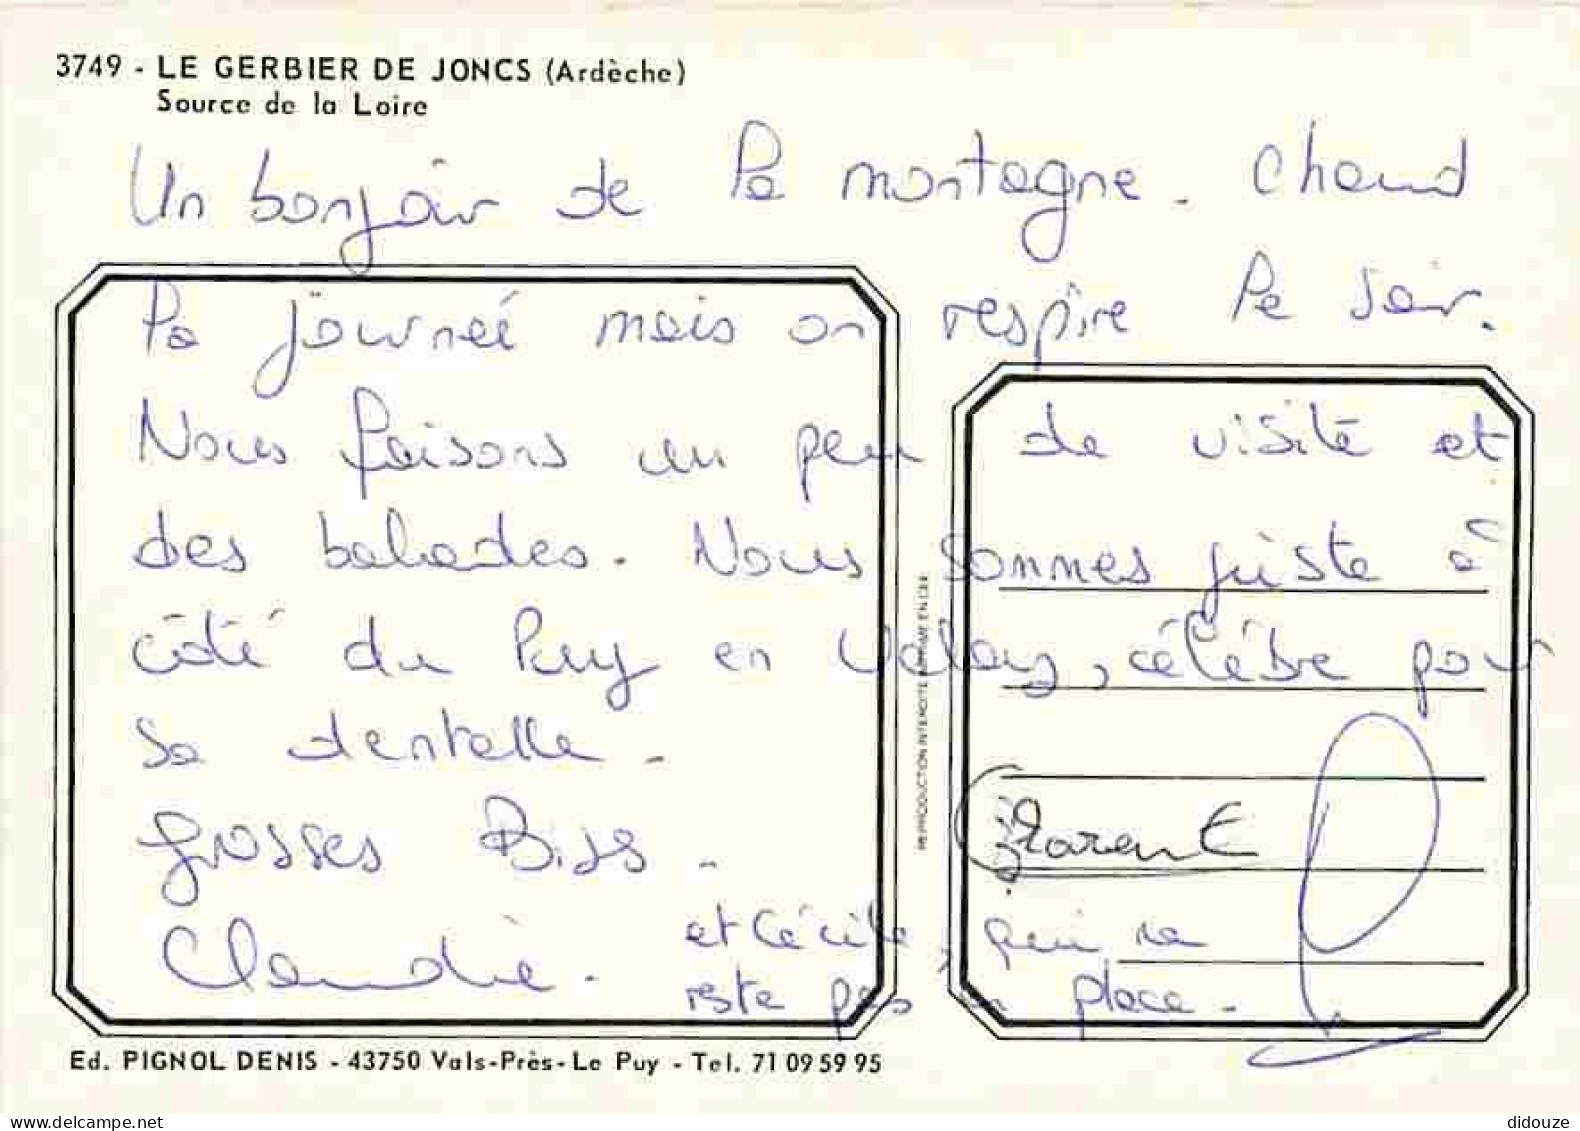 3749 - LE GERBIER DE JONCS (Ardèche)
Source de la Loire
Un bonjour de la montagne. Chaud
la journeé mais on respire le soir.
Nous faisons un peu de visite et
des balades. Nous sommes juste à
côté du Puy en Velay, célèbre pour
sa dentelle.
Grosses Bises.
Claudie.
Florent
et Cécile, qui ne
reste pas en place.
REPRODUCTION INTERDITE IMPRIMÉ EN CEE
Ed. PIGNOL DENIS - 43750 Vals-Près-Le Puy - Tel. 71 09 59 95
www.delcampe.net
didouze